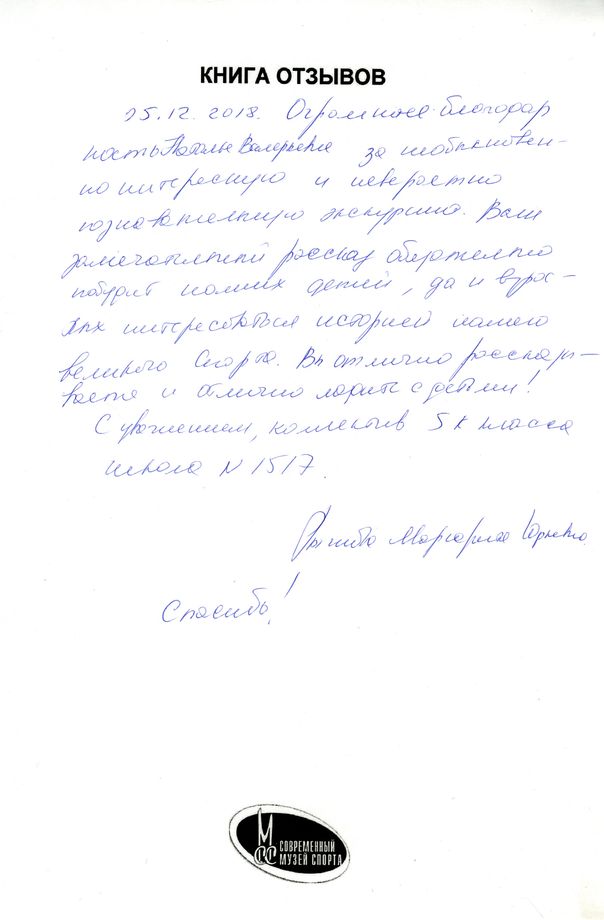 КНИГА ОТЗЫВОВ
25.12.2018. Огромная благодар
ность Наталье Валерьевне за необыкновен-
но интересную и невероятно
познавательную экскурсию. Ваш
замечательный рассказ обязательно
побудит наших детей, да и взрос-
лых интересоваться историей нашего
великого спорта. Вы отлично рассказы-
ваете и отлично ладите с детьми!
С уважением, коллектив 5 К класса
школа N 1517.
Маргарита
Спасибо!
М
СС СОВРЕМЕННЫЙ
МУЗЕЙ СПОРТА